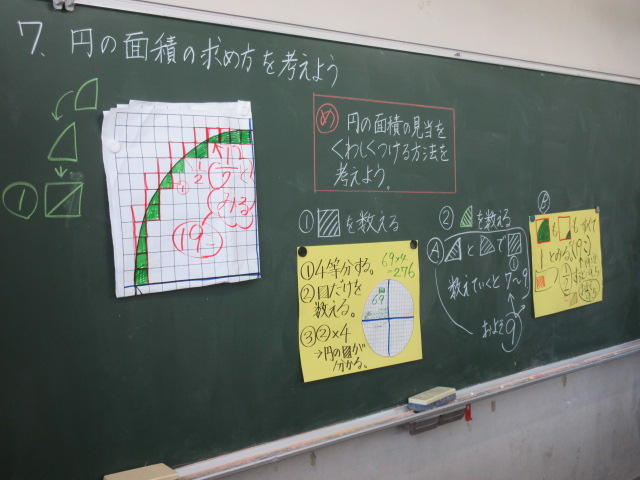 7、円の面積の求め方を考えよう
①
1/2
19
め 円の面積の見当を
くわしくつける方法を
考えよう。
① を数える
①4等分する。
②口だけを
数える。
③②×4
→円の面が
分かる。
69×4
=276
69
② を数える
A と で
①
数えていくと7〜9
およそ9
B
も も すべて
1/2